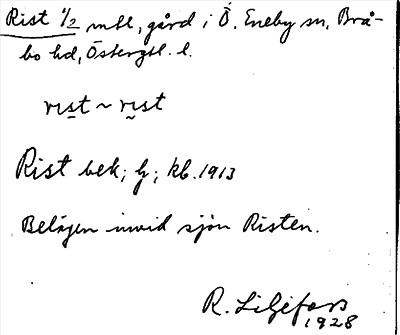 Rist 1/2 mtl, gård i Ö. Eneby sn, Brå-
bo hd, Östergtl. l.
rıst ~ rıst
Rist bek; hj; kb. 1913
Belägen invid sjön Risten.
R. Liljefors
1928